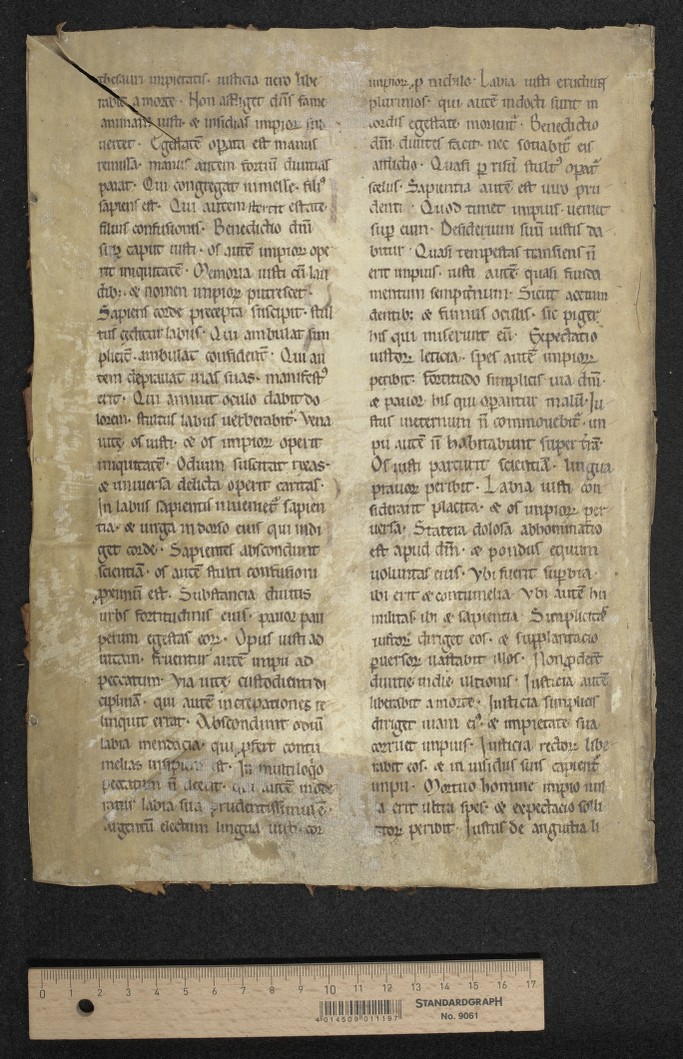 thesauri impietatis. iusticia uero libe
rabit a morte. Non affliget dn̄s fame
animam iusti. & insidias impior̄ sub
uertet. Egestatē opata est manus
remissa. manus autem fortiū diuitias
parat. Qui congregat in messe. filiꝰ
sapiens est. Qui autem stertit estate.
filius confusionis. Benedictio dn̄i
sup caput iusti. os autē impior̄ ope
rit iniquitatē. Memoria iusti cū lau
dib;. & nomen impior̄ putrescet.
Sapiens corde precepta suscipit. stul
tus ceditur labiis. Qui ambulat sim
pliciť. ambulat confident̛. Qui au
tem deprauat uias suas. manifestꝰ
erit. Qui annuit oculo dabit do
lorem. stultus labiis uerberabit᷑. Vena
uite os iusti. & os impior̄ operit
iniquitatē. Odium suscitat rixas.
& uniuersa delicta operit caritas.
In labiis sapientis inueniet᷑ sapien
tia. & uirga in dorso eius qui indi
get corde. Sapientes abscondunt
scientiā. os autē stulti confusioni
proximū est. Substancia diuitis
urbs fortitudinis eius. pauor pau
perum egestas eor̄. Opus iusti ad
uitam. fructus autē impii ad
peccatum. Via uite custodienti di
sciplinā. qui autē increpationes re
linquit errat. Abscondunt odiū
labia mendacia. qui ꝓfert contu
melias insipiens est. In multiloq̄o
peccatum n̄ deerit. qui autē mode
ratur labia sua prudentissimus ē.
Argentū electum lingua iusti. cor
impior̄ ꝓ nichilo. Labia iusti erudiūt
plurimos. qui autē indocti sunt in
cordis egestate morient᷑. Benedictio
dn̄i diuites facit. nec sociabit᷑ eis
afflictio. Quasi ꝑ risū stultꝰ opat᷑
scelus. Sapientia autē est uiro pru
denti. Quod timet impius. ueniet
sup eum. Desiderium suū iustis da
bitur. Quasi tempestas transiens n̄
erit impius. iusti autē quasi funda
mentum sempiternum. Sicut acetum
dentib; & fumus oculis. sic piger
his qui miserunt eū. Expectatio
iustor̄ leticia. spes autē impior̄
peribit. Fortitudo simplicis uia dn̄i.
& pauor his qui operantur malū. Iu
stus ineternum n̄ commouebit᷑. im
pii autē n̄ habitabunt super t̛rā.
Os iusti parturit scientiā. lingua
prauor̄ peribit. Labia iusti con
siderant placita. & os impior̄ per
uersa. Statera dolosa abhominatio
est apud dn̄m. & pondus equum
uoluntas eius. Vbi fuerit supbia.
ibi erit & contumelia. Vbi autē hu
militas. ibi & sapientia. Simplicitas
iustor̄ diriget eos. & supplantacio
ꝑuersor̄ uastabit illos. Non ꝓderūt
diuitie in die ultionis. Iusticia autē
liberabit a morte. Iusticia simplicis
diriget uiam eiꝰ. & impietate sua
corruet impius. Iusticia rector̄ libe
rabit eos. & in insidiis suis capient᷑
impii. Mortuo homine impio nul
la erit ultra spes. & expectacio solli
citor̄ peribit. Iustus de angustia li
0 1 2 3 4 5 6 7 8 9 10 11 12 13 14 15 16 17
4 014509 011197
STANDARDGRAPH
No. 9061